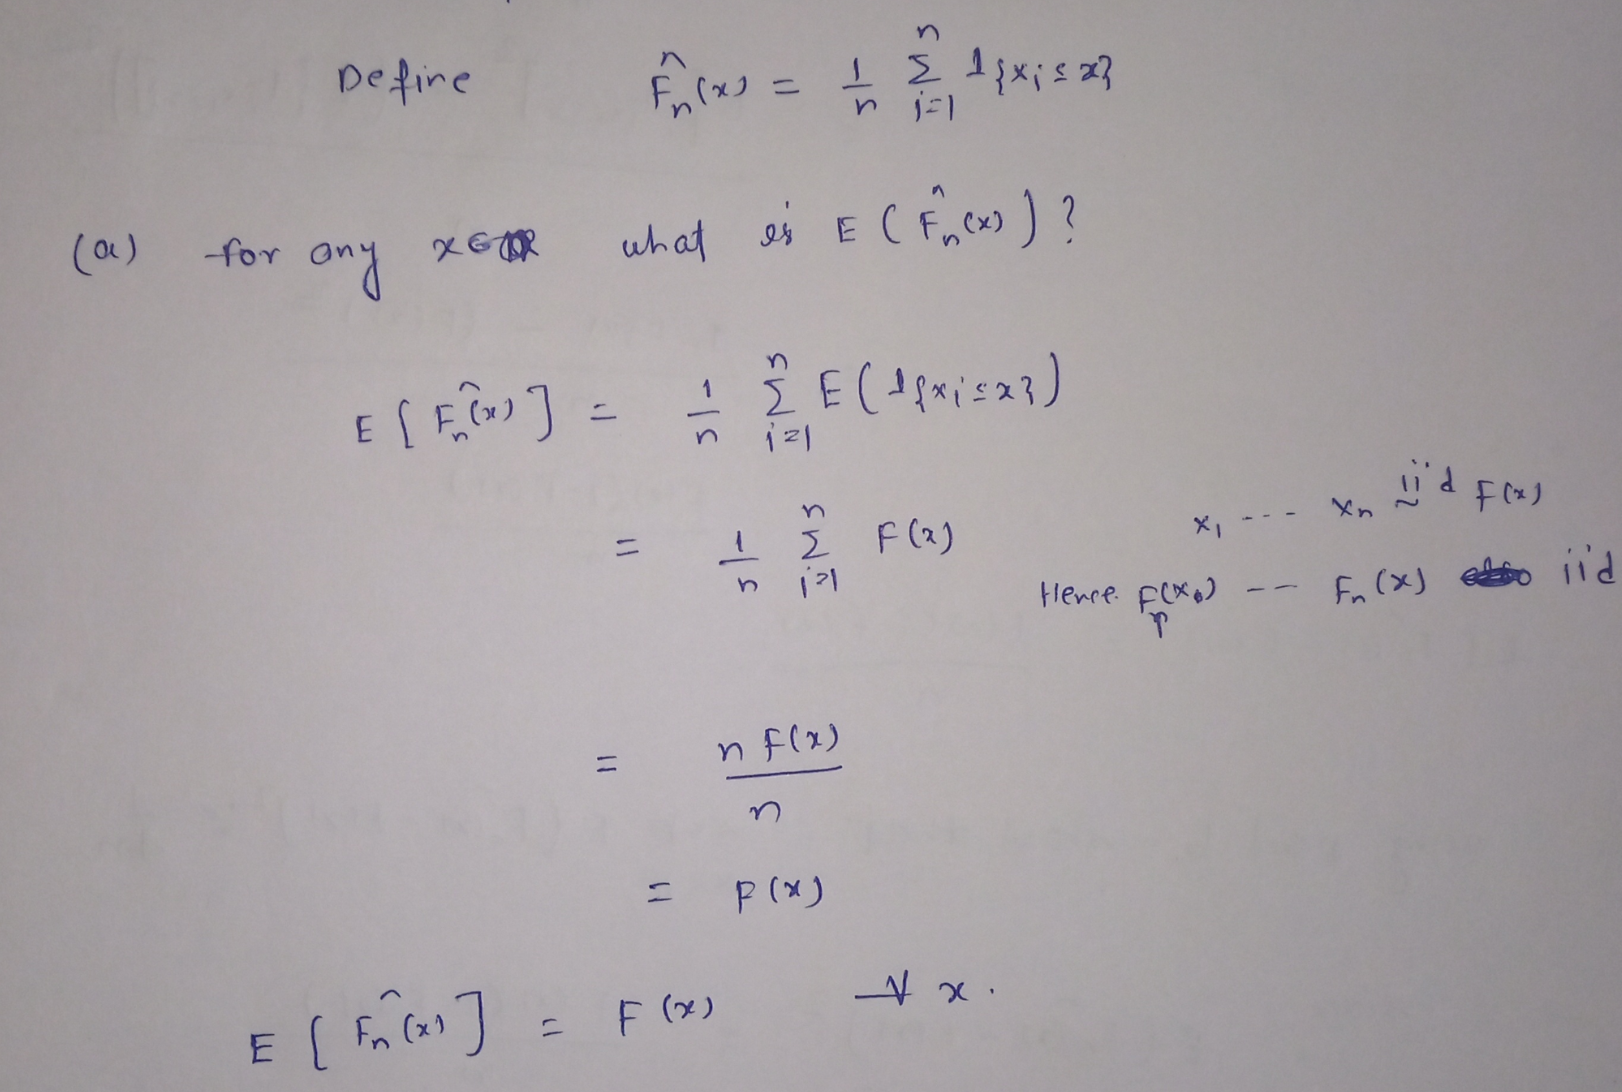 Define F̂n(x) = 1/n Σ_{i=1}^{n} 1{xi ≤ x}
(a) for any x∈ℝ what is E(F̂n(x))?
E[F̂n(x)] = 1/n Σ_{i=1}^{n} E(1{xi ≤ x})
= 1/n Σ_{i=1}^{n} F(x) x1 --- xn iid ~ F(x)
Hence -- Fn(x) iid
= nF(x)/n
= F(x)
E[F̂n(x)] = F(x) ∀ x.